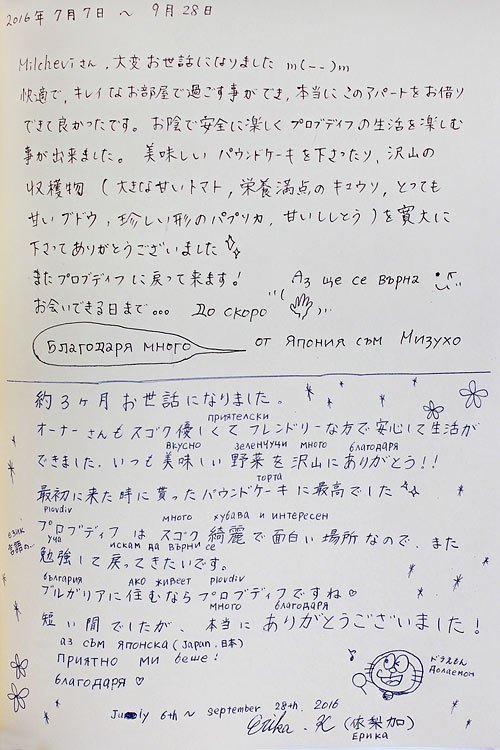 2016年 7月7日 ～ 9月28日
Milcheviさん, 大変お世話になりました m(--)m
快適で, キレイなお部屋で過ごす事ができ, 本当にこのアパートをお借り
できて良かったです。お陰で安全に楽しくプロブディフの生活を楽しむ
事が出来ました。美味しいパウンドケーキを下さったり, 沢山の
収穫物 (大きな甘いトマト, 栄養満点のキュウリ, とっても
甘いブドウ, 珍しい形のパプリカ, 甘いししとう) を寛大に
下さってありがとうございました
またプロブディフに戻って来ます! Аз ще се върна
お会いできる日まで... До скоро
Благодаря много от Япония съм Мизухо
約3ヶ月お世話になりました。
приятелски
オーナーさんもスゴク優しくてフレンドリーな方で安心して生活が
вкусно зеленчуци много благодаря
できました. いつも美味しい野菜を沢山にありがとう!!
торта
最初に来た時に貰ったパウンドケーキに最高でした
plovdiv много хубава и интересен
プロブディフはスゴク綺麗で面白い場所なので、また
език 言語の... уча искам да върни се
勉強して戻ってきたいです。
българия ако живеет plovdiv
ブルガリアに住むならプロブディフですね♡
много благодаря
短い間でしたが、本当にありがとうございました!
аз съм японска (Japan. 日本)
приятно ми беше!
благодаря ♡
ドラえもん
Дораемон
July 6th ~ september 28th. 2016
Erika. K (依梨加)
Ерика